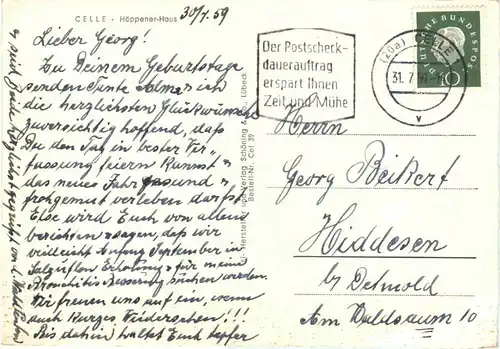 CELLE - Höppener-Haus
30/7.59
Lieber Georg!
Zu Deinem Geburtstage
senden Tante Alma + ich
die herzlichsten Glückwünsche
zuversichtig hoffend, daß
Du den Tag in bester Ver-
fassung feiern kannst +
das neues Jahr gesund +
frohgemut verleben darfst
Else wird Euch von allem
berichten + sagen, daß wir
vielleicht Anfang September in
Salzuflen Erholung + für meine
Bronchitis Besserung suchen werden.
Wir freuen uns auf ein, wenn
auch kurzes Wiedersehen!!!
Bis dahin haltet Euch tapfer
+ seid beide herzlichst gegrüßt von
Herstellung und Verlag Schöning & Co., Lübeck
Bestell-Nr. Cel 39
Der Postscheck-
dauerauftrag
erspart Ihnen
Zeit und Mühe
(20a) CELLE
31. 7
v
DEUTSCHE BUNDESPOST
10
Herrn
Georg Beikert
Hiddesen
b/ Detmold
Am 10